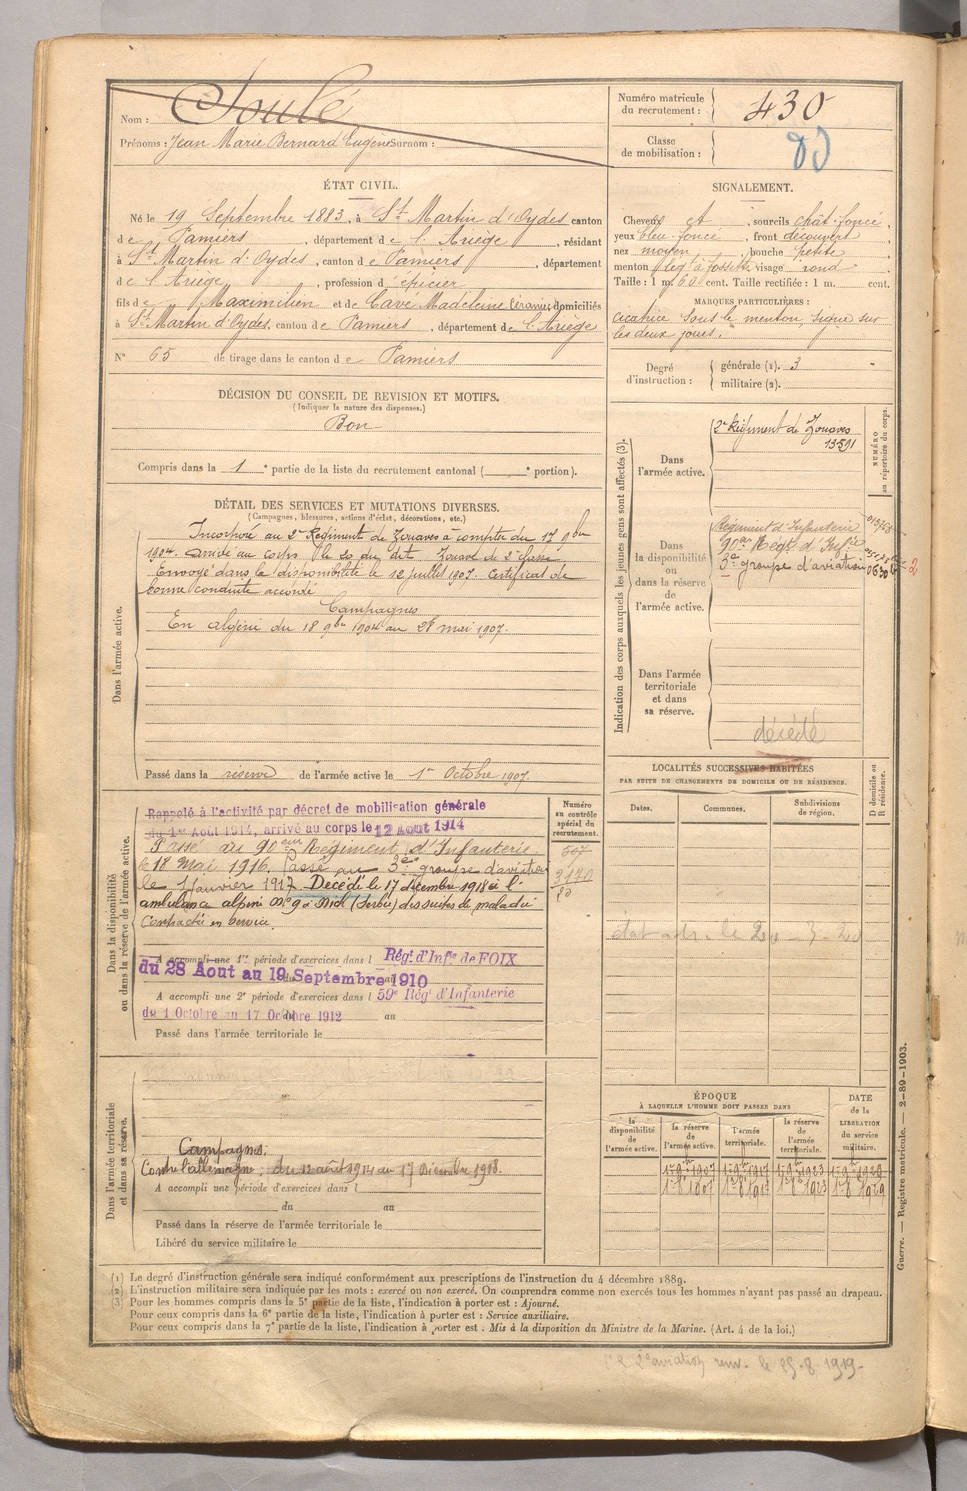 Nom : Soulé
Prénoms : Jean Marie Bernard Eugène Surnom :
Numéro matricule du recrutement : 430
Classe de mobilisation :
ÉTAT CIVIL.
Né le 19 Septembre 1883, à St Martin d'Oydes canton
de Pamiers, département de l'Ariège, résidant
à St Martin d'Oydes, canton de Pamiers, département
de l'Ariège, profession d'épicier
fils de Maximilien et de Cave Madeleine domiciliés
à St Martin d'Oydes, canton de Pamiers, département de l'Ariège
N° 65 de tirage dans le canton de Pamiers
SIGNALEMENT.
Cheveux et, sourcils chât. foncé,
yeux bleu foncé, front découvert,
nez moyen, bouche petite,
menton à fossette visage rond
Taille : 1 m. 60 cent. Taille rectifiée : 1 m. cent.
MARQUES PARTICULIÈRES :
cicatrice sous le menton, signe sur
les deux joues.
Degré d'instruction : générale (1). 3
militaire (2).
DÉCISION DU CONSEIL DE REVISION ET MOTIFS.
(Indiquer la nature des dispenses.)
Bon
Compris dans la 1e partie de la liste du recrutement cantonal ( e portion).
DÉTAIL DES SERVICES ET MUTATIONS DIVERSES.
(Campagnes, blessures, actions d'éclat, décorations, etc.)
Dans l'armée active.
Incorporé au 2e Régiment de Zouaves à compter du 17 9bre
1904. Arrivé au corps le 20 du dit Zouave de 2e classe
Envoyé dans la disponibilité le 12 juillet 1907. Certificat de
bonne conduite accordé
Campagnes
En algérie du 18 9bre 1904 au 28 mai 1907.
Passé dans la réserve de l'armée active le 1er Octobre 1907.
Indication des corps auxquels les jeunes gens sont affectés (3).
NUMÉRO au répertoire du corps.
Dans l'armée active.
2e Régiment de Zouaves
13591
Dans la disponibilité ou dans la réserve de l'armée active.
Régiment d'Infanterie
90ème Régt d'Infie
3e groupe d'aviation
Dans l'armée territoriale et dans sa réserve.
décédé
LOCALITÉS SUCCESSIVES HABITÉES
PAR SUITE DE CHANGEMENTS DE DOMICILE OU DE RÉSIDENCE.
Dates.
Communes.
Subdivisions de région.
D domicile ou R résidence.
Dans la disponibilité ou dans la réserve de l'armée active.
Numéro au contrôle spécial du recrutement.
Rappelé à l'activité par décret de mobilisation générale
du 1er Août 1914, arrivé au corps le 12 Août 1914
Passé au 90ème Régiment d'Infanterie
le 18 Mai 1916. Passé au 3e groupe d'aviation
le 1 Janvier 1917. Décédé le 17 décembre 1918 à l'
ambulance alpine No 9 à Nich (Serbie) des suites de maladie
Contractée en Service.
A accompli une 1re période d'exercices dans l Régt d'Infie de FOIX
du 28 Aout au 19 Septembre 1910
A accompli une 2e période d'exercices dans l 59e Régt d'Infanterie
du 1 Octobre au 17 Octobre 1912 au
Passé dans l'armée territoriale le
Dans l'armée territoriale et dans sa réserve.
Campagnes.
Contre l'allemagne : du 12 août 1914 au 17 Décembre 1918.
A accompli une période d'exercices dans l
du au
Passé dans la réserve de l'armée territoriale le
Libéré du service militaire le
ÉPOQUE
À LAQUELLE L'HOMME DOIT PASSER DANS
la disponibilité de l'armée active.
la réserve de l'armée active.
l'armée territoriale.
la réserve de l'armée territoriale.
DATE de la LIBÉRATION du service militaire.
1er 9bre 1907 1er 9bre 1917 1er 9bre 1923 1er 9bre 1929
1er 8 1907 1er 8 1917 1er 8 1923 1er 8 1929
Guerre. — Registre matricule. — 2-89-1903.
(1) Le degré d'instruction générale sera indiqué conformément aux prescriptions de l'instruction du 4 décembre 1889.
(2) L'instruction militaire sera indiquée par les mots : exercé ou non exercé. On comprendra comme non exercés tous les hommes n'ayant pas passé au drapeau.
(3) Pour les hommes compris dans la 5e partie de la liste, l'indication à porter est : Ajourné.
Pour ceux compris dans la 6e partie de la liste, l'indication à porter est : Service auxiliaire.
Pour ceux compris dans la 7e partie de la liste, l'indication à porter est : Mis à la disposition du Ministre de la Marine. (Art. 4 de la loi.)
aviation le 25-8-1919